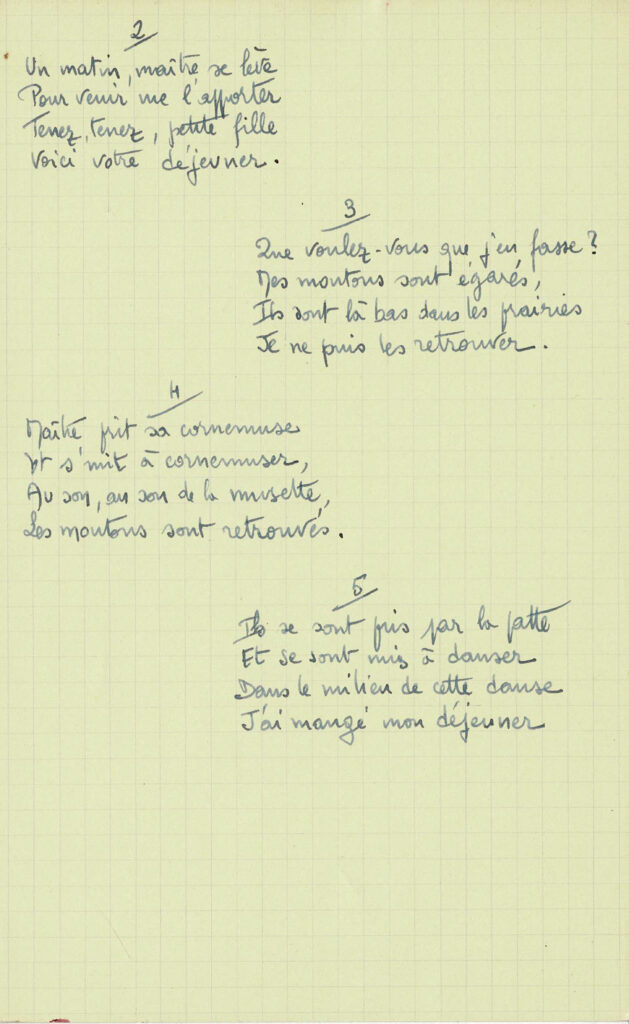 2
Un matin, maître se lève
Pour venir me l'apporter
Tenez, tenez, petite fille
Voici votre déjeuner.
3
Que voulez-vous que j'en fasse?
Mes moutons sont égarés,
Ils sont là bas dans les prairies
Je ne puis les retrouver.
4
Maître prit sa cornemuse
Et s'mit à cornemuser,
Au son, au son de la musette,
Les moutons sont retrouvés.
5
Ils se sont pris par la patte
Et se sont mis à danser
Dans le milieu de cette danse
J'ai mangé mon déjeuner